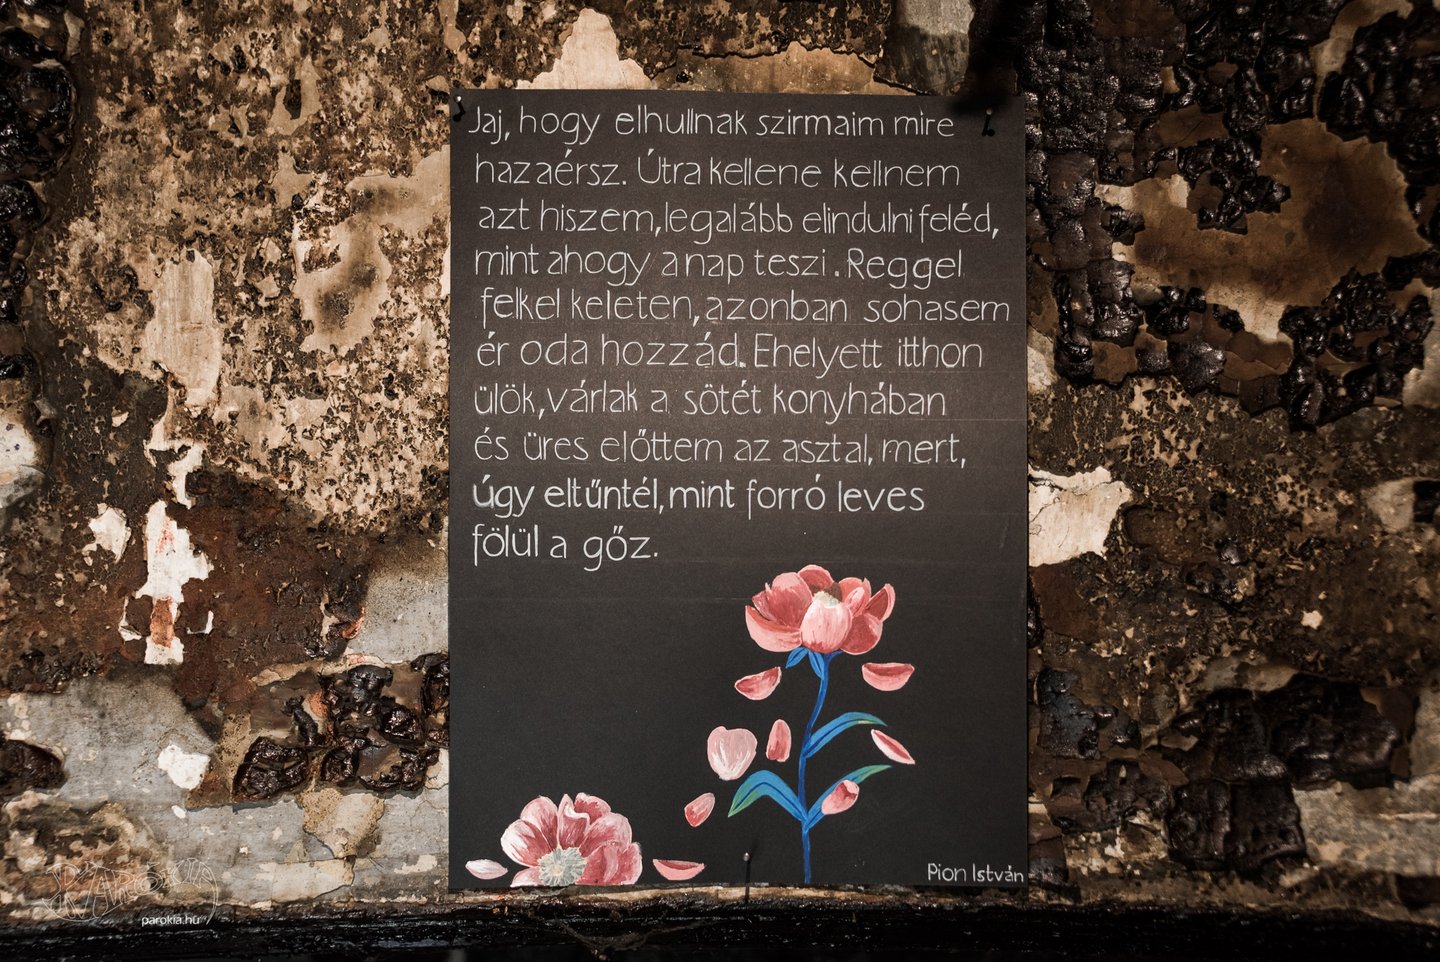 Jaj, hogy elhullnak szirmaim mire
hazaérsz. Útra kellene kellnem
azt hiszem, legalább elindulni feléd,
mint ahogy a nap teszi. Reggel
felkel keleten, azonban sohasem
ér oda hozzád. Ehelyett itthon
ülök, várlak a sötét konyhában
és üres előttem az asztal, mert,
úgy eltűntél, mint forró leves
fölül a gőz.
Pion István
PAROKIA
parokia.hu